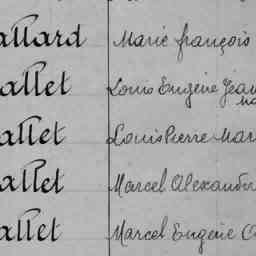 allard Marie françois
allet Louis Eugène Jean
allet Louis Pierre Mari
allet Marcel Alexandr
allet Marcel Eugène